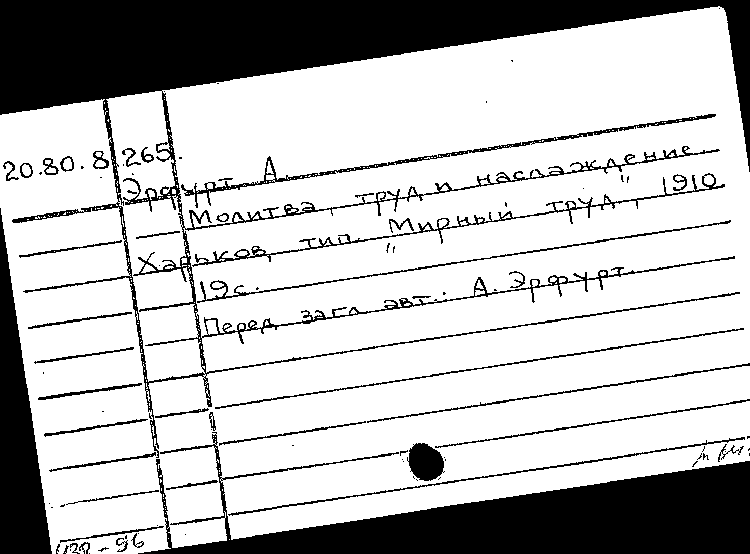 20.80.8.265.
Эрфурт, А.
Молитва, труд и наслаждение.
Харьков, тип. „Мирный труд", 1910
19с.
Перед загл. авт.: А. Эрфурт.
-96